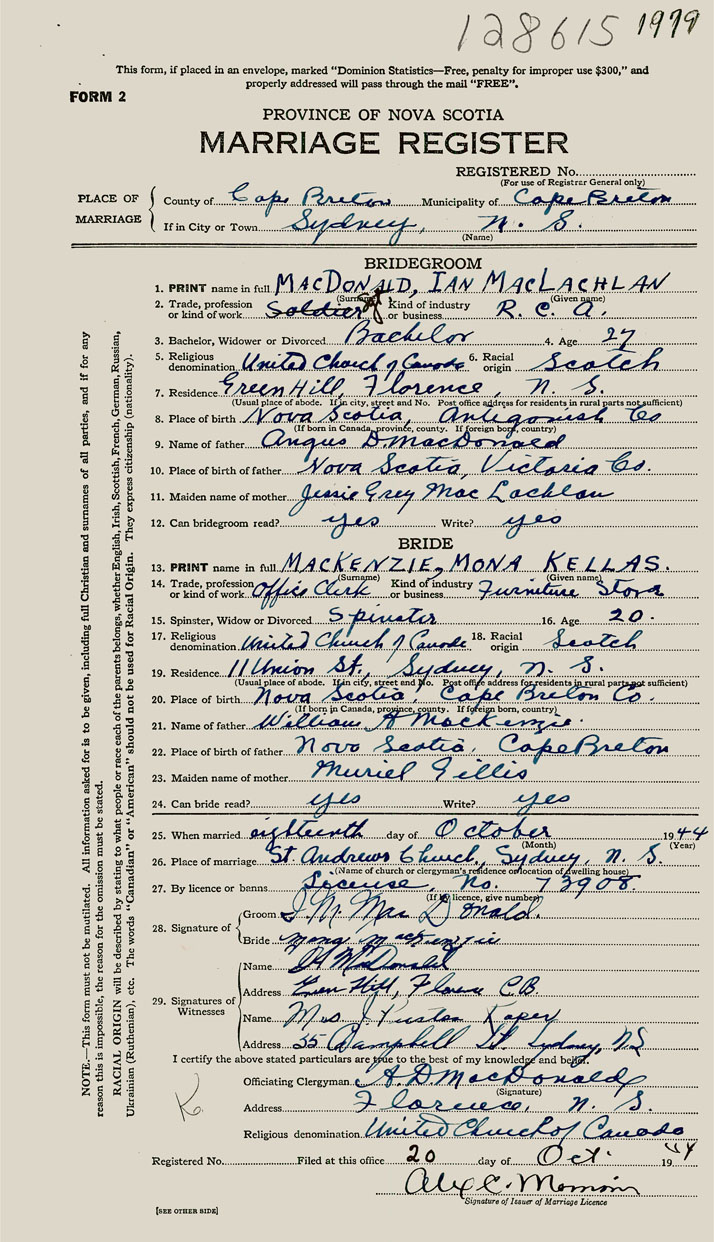 128615 1979
This form, if placed in an envelope, marked "Dominion Statistics—Free, penalty for improper use $300," and
properly addressed will pass through the mail "FREE".
FORM 2
PROVINCE OF NOVA SCOTIA
MARRIAGE REGISTER
REGISTERED No.
(For use of Registrar General only)
PLACE OF MARRIAGE
County of Cape Breton Municipality of Cape Breton
If in City or Town Sydney, N. S.
(Name)
BRIDEGROOM
1. PRINT name in full MACDONALD, IAN MACLACHLAN
(Surname) (Given name)
2. Trade, profession or kind of work Soldier Kind of industry or business R. C. A.
3. Bachelor, Widower or Divorced Bachelor 4. Age 27
5. Religious denomination United Church of Canada 6. Racial origin Scotch
7. Residence Green Hill, Florence, N. S.
(Usual place of abode. If in city, street and No. Post office address for residents in rural parts not sufficient)
8. Place of birth Nova Scotia, Antigonish Co
(If born in Canada, province, county. If foreign born, country)
9. Name of father Angus D. MacDonald
10. Place of birth of father Nova Scotia, Victoria Co.
11. Maiden name of mother Jessie Grey MacLachlan
12. Can bridegroom read? yes Write? yes
BRIDE
13. PRINT name in full MACKENZIE, MONA KELLAS.
(Surname) (Given name)
14. Trade, profession or kind of work Office Clerk Kind of industry or business Furniture Store
15. Spinster, Widow or Divorced Spinster 16. Age 20.
17. Religious denomination United Church of Canada 18. Racial origin Scotch
19. Residence 11 Union St., Sydney, N. S.
(Usual place of abode. If in city, street and No. Post office address for residents in rural parts not sufficient)
20. Place of birth Nova Scotia, Cape Breton Co.
(If born in Canada, province, county. If foreign born, country)
21. Name of father William A MacKenzie.
22. Place of birth of father Nova Scotia, Cape Breton
23. Maiden name of mother Muriel Gillis
24. Can bride read? yes Write? yes
25. When married eighteenth day of October 1944
(Month) (Year)
26. Place of marriage St. Andrews Church, Sydney, N. S.
(Name of church or clergyman's residence or location of dwelling house)
27. By licence or banns License, No. 73908.
(If by licence, give number)
28. Signature of
Groom MacDonald.
Bride MacKenzie
29. Signatures of Witnesses
Name McDonald
Address Green Hill, Florence C.B.
Name Mrs. J.
Address 35 Campbell St. Sydney, N.S.
I certify the above stated particulars are true to the best of my knowledge and belief.
Officiating Clergyman A. D. MacDonald
(Signature)
Address Florence, N. S.
Religious denomination United Church of Canada
Registered No. Filed at this office 20 day of Oct. 1944
Alex C.
Signature of Issuer of Marriage Licence
[SEE OTHER SIDE]
NOTE.—This form must not be mutilated. All information asked for is to be given, including full Christian and surnames of all parties, and if for any
reason this is impossible, the reason for the omission must be stated.
RACIAL ORIGIN will be described by stating to what people or race each of the parents belongs, whether English, Irish, Scottish, French, German, Russian,
Ukrainian (Ruthenian), etc. The words "Canadian" or "American" should not be used for Racial Origin. They express citizenship (nationality).